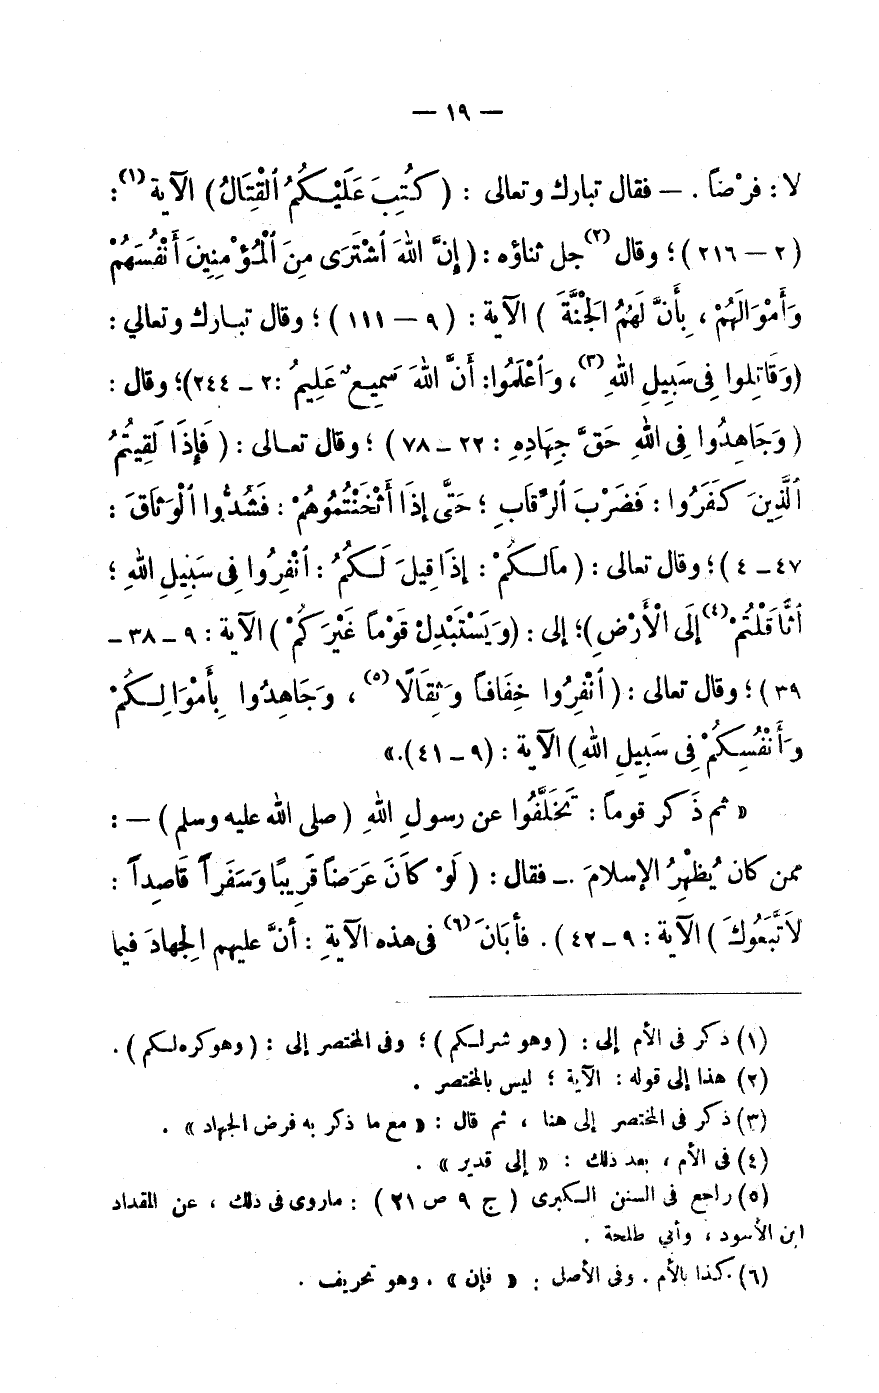 — ١٩ —
لا : فرْضاً . — فقال تبارك وتعالى : ( كُتِبَ عَلَيْكُمُ ٱلْقِتَالُ ) الآية (١) :
( ٢ — ٢١٦ ) ؛ وقال (٢) جل ثناؤه : ( إِنَّ ٱللهَ ٱشْتَرَى مِنَ ٱلْمُؤْمِنِينَ أَنْفُسَهُمْ
وَأَمْوَالَهُمْ ، بِأَنَّ لَهُمُ الْجَنَّةَ ) الآية : ( ٩ — ١١١ ) ؛ وقال تبارك وتعالي :
(وَقَاتِلوا فِى سَبِيلِ اللهِ (٣) ، وَٱعْلَمُوا: أَنَّ اللهَ سَمِيعٌ عَلِيمُ : ٢ - ٢٤٤)؛ وقال :
( وَجَاهِدُوا فِى اللهِ حَقَّ جِهَادِهِ : ٢٢ - ٧٨ ) ؛ وقال تعالى : ( فَإِذَا لَقِيتُمُ
ٱلَّذِينَ كَفَرُوا : فَضَرْبَ ٱلرِّقَابِ ؛ حَتَّى إِذَا أَثْخَنْتُمُوهُمْ : فَشُدُّوا ٱلْوَثَاقَ :
٤٧ - ٤ ) ؛ وقال تعالى : ( مَالَكُمْ : إِذَا قِيلَ لَكُمُ : ٱنْفِرُوا فِى سَبِيلِ اللهِ ؛
ٱثَّاقَلْتُمْ (٤) إِلَى الْأَرْضِ )؛ إلى : (وَيَسْتَبْدِلْ قَوْماً غَيْرَكُمْ ) الآية : ٩ - ٣٨ -
٣٩ ) ؛ وقال تعالى : ( ٱنْفِرُوا خِفَافاً وَثِقَالًا (٥) ، وَجَاهِدُوا بِأَمْوَالِكُمْ
وَأَنْفُسِكُمْ فِى سَبِيلِ اللهِ ) الآية : (٩ - ٤١).»
« ثم ذَكر قوماً : تَخَلَّفُوا عن رسولِ اللهِ ( صلى الله عليه وسلم ) — :
ممن كان يُظْهِرُ الإسلامَ . - فقال : ( لَوْ كَانَ عَرَضاً قَرِيبًا وَسَفَراً قَاصِداً :
لَاتَّبَعُوكَ ) الآية : ٩ - ٤٢ ) . فأبَانَ (٦) فى هذه الآيةِ : أنَّ عليهم الجهادَ فيما
(١) ذكر فى الأم إلى : ( وهو شر لكم ) ؛ وفى المختصر إلى : ( وهو كره لكم ) .
(٢) هذا إلى قوله : الآية ؛ ليس بالمختصر .
(٣) ذكر فى المختصر إلى هنا ، ثم قال : « مع ما ذكر به فرض الجهاد » .
(٤) فى الأم ، بعد ذلك : « إلى قدير » .
(٥) راجع فى السنن الكبرى ( ج ٩ ص ٢١ ) : ماروى فى ذلك ، عن المقداد
ابن الأسود ، وأبي طلحة .
(٦) كذا بالأم . وفى الأصل : « فإن » ، وهو تحريف .